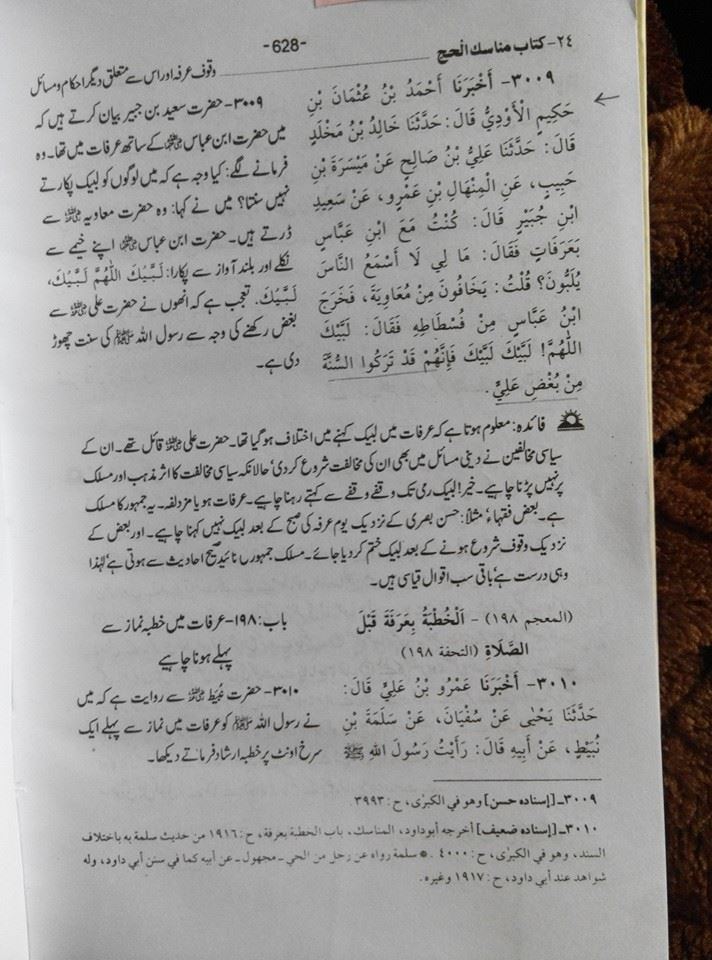 ٢٤- كتاب مناسك الحج
-628-
وقوف عرفہ اور اس سے متعلق دیگر احکام و مسائل
٣٠٠٩- أَخْبَرَنَا أَحْمَدُ بْنُ عُثْمَانَ بْنِ
حَكِيمٍ الْأَوْدِيُّ قَالَ: حَدَّثَنَا خَالِدُ بْنُ مَخْلَدٍ
قَالَ: حَدَّثَنَا عَلِيُّ بْنُ صَالِحٍ عَنْ مَيْسَرَةَ بْنِ
حَبِيبٍ، عَنِ الْمِنْهَالِ بْنِ عَمْرٍو، عَنْ سَعِيدِ
ابْنِ جُبَيْرٍ قَالَ: كُنْتُ مَعَ ابْنِ عَبَّاسٍ
بِعَرَفَاتٍ فَقَالَ: مَا لِي لَا أَسْمَعُ النَّاسَ
يُلَبُّونَ؟ قُلْتُ: يَخَافُونَ مِنْ مُعَاوِيَةَ، فَخَرَجَ
ابْنُ عَبَّاسٍ مِنْ فُسْطَاطِهِ فَقَالَ: لَبَّيْكَ
اللّٰهُمَّ! لَبَّيْكَ لَبَّيْكَ فَإِنَّهُمْ قَدْ تَرَكُوا السُّنَّةَ
مِنْ بُغْضِ عَلِيٍّ.
٣٠٠٩- حضرت سعید بن جبیر بیان کرتے ہیں کہ
میں حضرت ابن عباس ؓ کے ساتھ عرفات میں تھا۔ وہ
فرمانے لگے: کیا وجہ ہے کہ میں لوگوں کو لبیک پکارتے
نہیں سنتا؟ میں نے کہا: وہ حضرت معاویہ ؓ سے
ڈرتے ہیں۔ حضرت ابن عباس ؓ اپنے خیمے سے
نکلے اور بلند آواز سے پکارا: لَبَّيْكَ اللّٰهُمَّ لَبَّيْكَ،
لَبَّيْكَ. تعجب ہے کہ انھوں نے حضرت علی ؓ سے
بغض رکھنے کی وجہ سے رسول اللہ ﷺ کی سنت چھوڑ
دی ہے۔
فائدہ: معلوم ہوتا ہے کہ عرفات میں لبیک کہنے میں اختلاف ہو گیا تھا۔ حضرت علی ؓ قائل تھے۔ ان کے
سیاسی مخالفین نے دینی مسائل میں بھی ان کی مخالفت شروع کر دی، حالانکہ سیاسی مخالفت کا اثر مذہب اور مسلک
پر نہیں پڑنا چاہیے۔ خیر! لبیک رمی تک وقفے وقفے سے کہتے رہنا چاہیے۔ عرفات ہو یا مزدلفہ۔ یہ جمہور کا مسلک
ہے۔ بعض فقہاء، مثلاً: حسن بصری کے نزدیک یوم عرفہ کی صبح کے بعد لبیک نہیں کہنا چاہیے۔ اور بعض کے
نزدیک وقوف شروع ہونے کے بعد لبیک ختم کر دیا جائے۔ مسلک جمہور کی تائید صحیح احادیث سے ہوتی ہے، لہٰذا
وہی درست ہے، باقی سب اقوال قیاسی ہیں۔
(المعجم ١٩٨) - اَلْخُطْبَةُ بِعَرَفَةَ قَبْلَ
الصَّلَاةِ (التحفة ١٩٨)
باب: ١٩٨- عرفات میں خطبہ نماز سے
پہلے ہونا چاہیے
٣٠١٠- أَخْبَرَنَا عَمْرُو بْنُ عَلِيٍّ قَالَ:
حَدَّثَنَا يَحْيٰى عَنْ سُفْيَانَ، عَنْ سَلَمَةَ بْنِ
نُبَيْطٍ، عَنْ أَبِيهِ قَالَ: رَأَيْتُ رَسُولَ اللهِ ﷺ
٣٠١٠- حضرت نُبَیط ؓ سے روایت ہے کہ میں
نے رسول اللہ ﷺ کو عرفات میں نماز سے پہلے ایک
سرخ اونٹ پر خطبہ ارشاد فرماتے دیکھا۔
٣٠٠٩- [إسناده حسن] وهو في الكبرٰى، ح: ٣٩٩٣.
٣٠١٠- [إسناده ضعيف] أخرجه أبوداود، المناسك، باب الخطبة بعرفة، ح: ١٩١٦ من حديث سلمة به باختلاف
السند، وهو في الكبرٰى، ح: ٤٠٠٠. * سلمة رواه عن رجل من الحي - مجهول - عن أبيه كما في سنن أبي داود، وله
شواهد عند أبي داود، ح: ١٩١٧ وغيره.